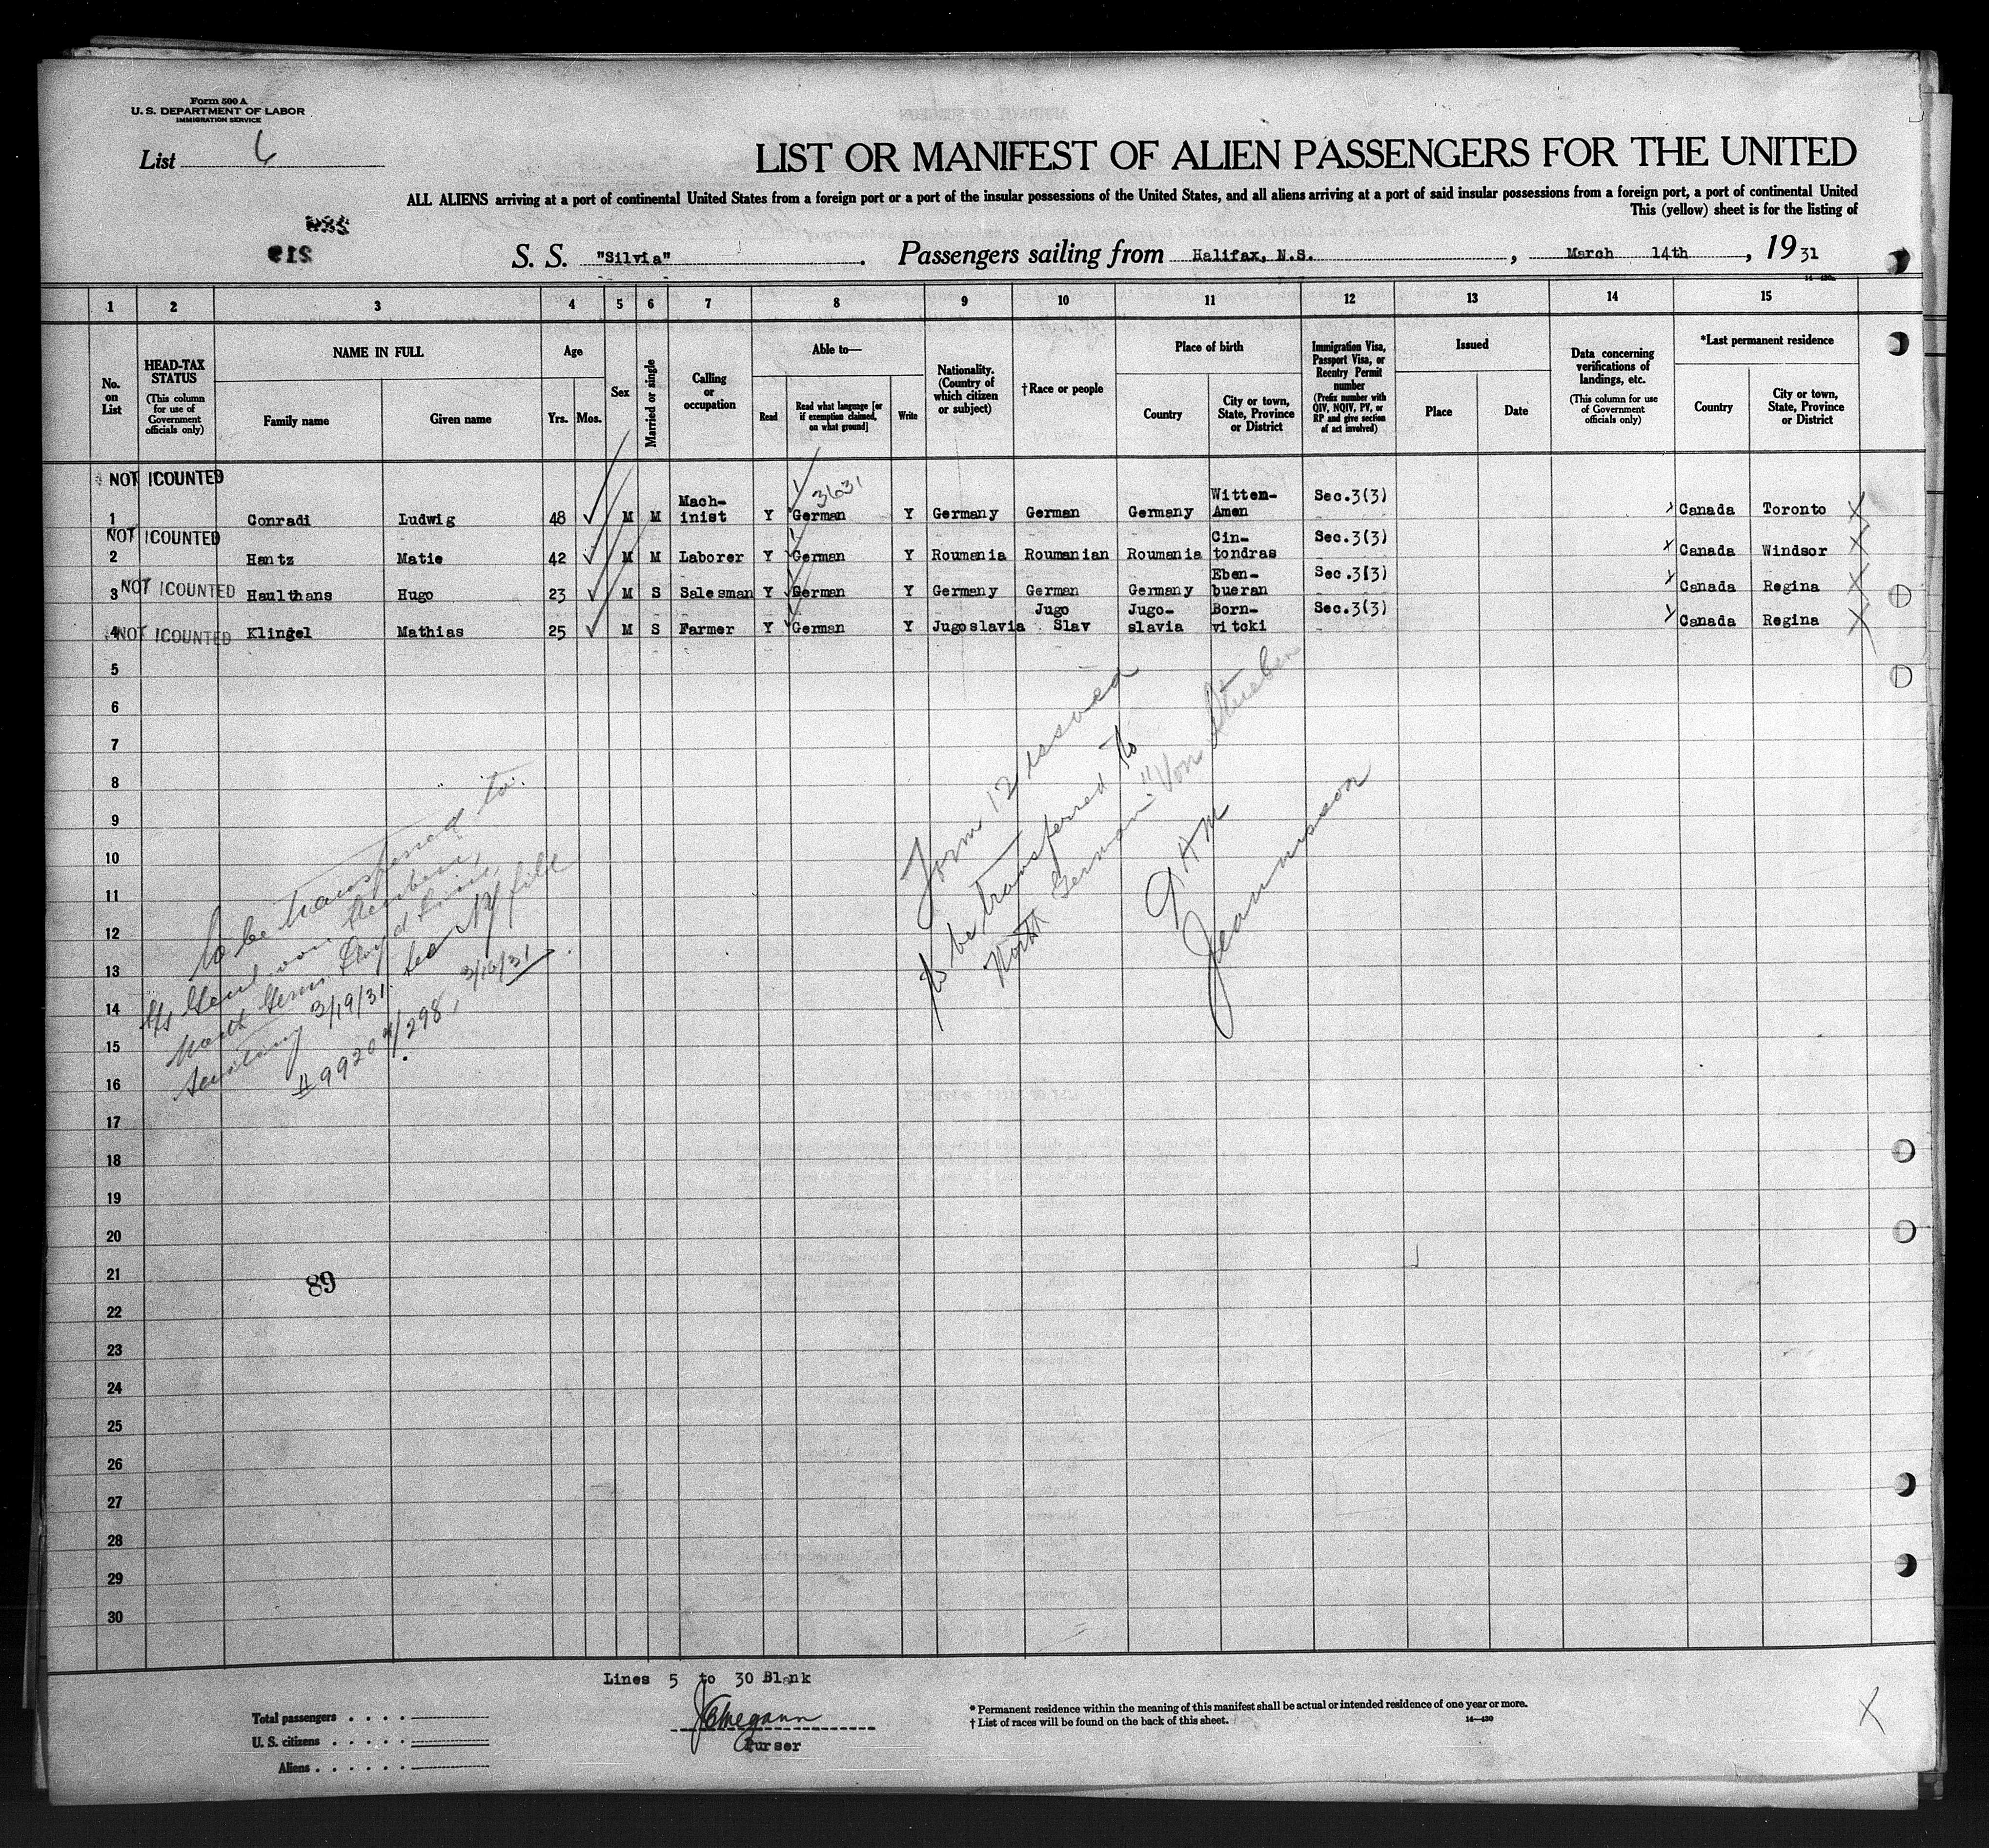 Form 500 A
U. S. DEPARTMENT OF LABOR
IMMIGRATION SERVICE
List 6
LIST OR MANIFEST OF ALIEN PASSENGERS FOR THE UNITED
ALL ALIENS arriving at a port of continental United States from a foreign port or a port of the insular possessions of the United States, and all aliens arriving at a port of said insular possessions from a foreign port, a port of continental United
This (yellow) sheet is for the listing of
219
S. S. "Silvia". Passengers sailing from Halifax, N.S., March 14th, 1931
1 2 3 4 5 6 7 8 9 10 11 12 13 14 15
No. on List
HEAD-TAX STATUS
(This column for use of Government officials only)
NAME IN FULL
Family name
Given name
Age
Yrs. Mos.
Sex
Married or single
Calling or occupation
Able to—
Read
Read what language [or if exemption claimed, on what ground]
Write
Nationality. (Country of which citizen or subject)
†Race or people
Place of birth
Country
City or town, State, Province or District
Immigration Visa, Passport Visa, or Reentry Permit number
(Prefix number with QIV, NQIV, PV, or RP and give section of act involved)
Issued
Place
Date
Data concerning verifications of landings, etc.
(This column for use of Government officials only)
*Last permanent residence
Country
City or town, State, Province or District
3631
NOT COUNTED
1 Conradi Ludwig 48 M M Mach-inist Y German Y Germany German Germany Witten-Amen Sec.3(3) Canada Toronto
NOT COUNTED
2 Hantz Matie 42 M M Laborer Y German Y Roumania Roumanian Roumania Cin-tondras Sec.3(3) Canada Windsor
NOT COUNTED
3 Haulthans Hugo 23 M S Salesman Y German Y Germany German Germany Eben-bueran Sec.3(3) Canada Regina
NOT COUNTED
4 Klingel Mathias 25 M S Farmer Y German Y Jugoslavia Jugo Slav Jugo-slavia Born-vitcki Sec.3(3) Canada Regina
5
6
7
8
9
10
11
12
13
14
15
16
17
18
19
20
21
22
23
24
25
26
27
28
29
30
to be transferred to
S/s Genl. von Steuben,
North Germ. Lloyd Line,
3/19/31. see NY file
# 99204/298, 3/16/31
Form 12 issued
to be transferred to
North German "Von Stueben
9 AM
89
Lines 5 to 30 Blank
Purser
Total passengers
U. S. citizens
Aliens
* Permanent residence within the meaning of this manifest shall be actual or intended residence of one year or more.
† List of races will be found on the back of this sheet.
14—430